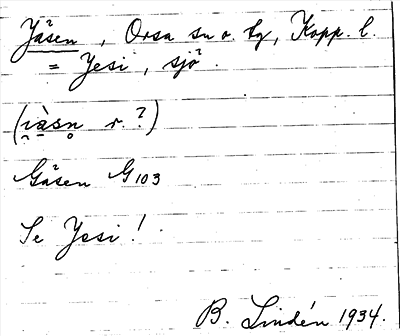 Jäsen, Orsa sn o. tg, Kopp. l.
= Jesi, sjö.
(i̯à̠sn̥ r.?)
Gäsen G103
Se Jesi!
B. Lindén 1934.